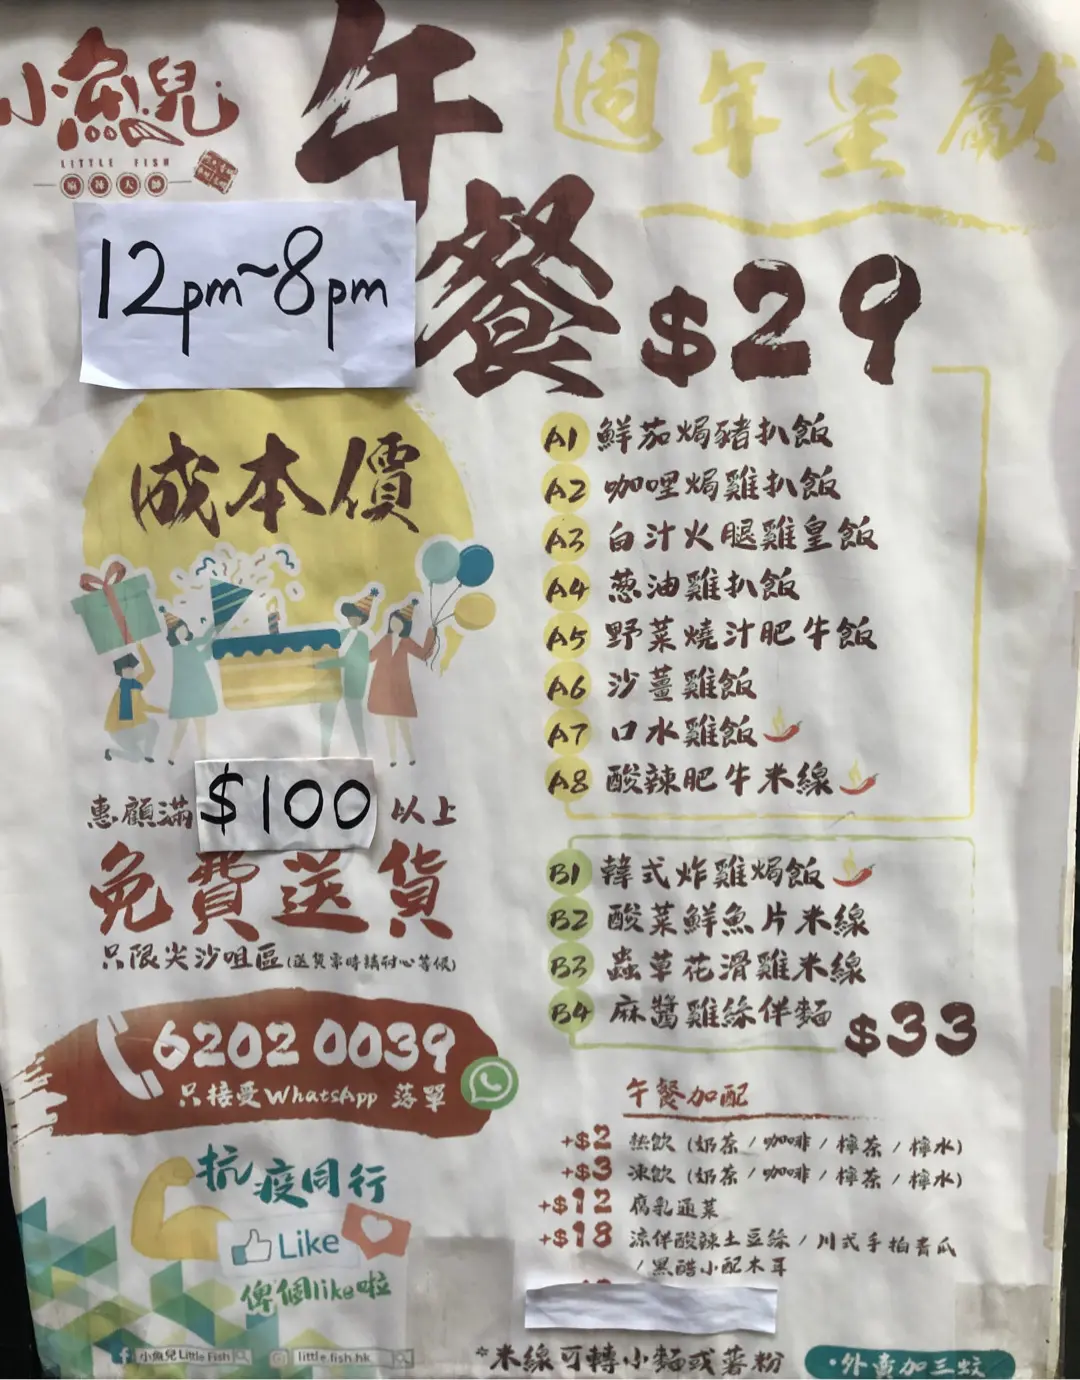 小魚兒
LITTLE FISH
麻辣大師
午餐
週年呈獻
12pm~8pm
$29
成本價
A1 鮮茄焗豬扒飯
A2 咖哩焗雞扒飯
A3 白汁火腿雞皇飯
A4 葱油雞扒飯
A5 野菜燒汁肥牛飯
A6 沙薑雞飯
A7 口水雞飯
A8 酸辣肥牛米線
惠顧滿 $100 以上
免費送貨
只限尖沙咀區(送貨需時請耐心等候)
6202 0039
只接受WhatsApp 落單
B1 韓式炸雞焗飯
B2 酸菜鮮魚片米線
B3 蟲草花滑雞米線
B4 麻醬雞絲伴麵
$33
午餐加配
+$2 熱飲 (奶茶 / 咖啡 / 檸茶 / 檸水)
+$3 凍飲 (奶茶 / 咖啡 / 檸茶 / 檸水)
+$12 腐乳通菜
+$18 涼伴酸辣土豆絲 / 川式手拍青瓜
/ 黑醋小配木耳
抗疫同行
Like
俾個like啦
小魚兒 Little Fish
little.fish.hk
*米線可轉小麵或薯粉
·外賣加三蚊